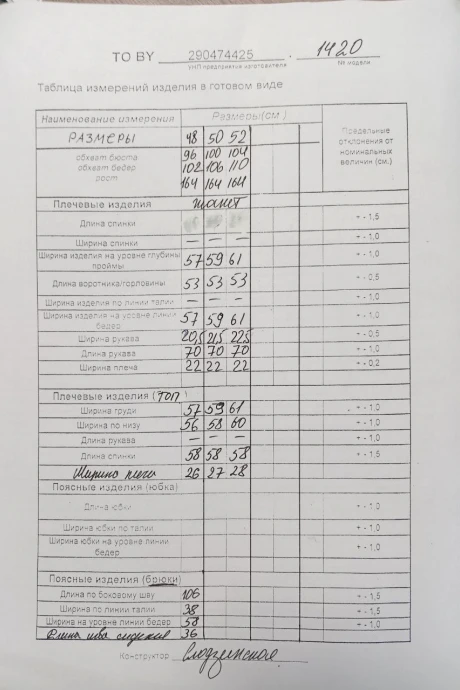 TO BY 290474425 . 1420
УНП предприятия изготовителя № модели
Таблица измерений изделия в готовом виде
Наименование измерения Размеры(см.) Предельные отклонения от номинальных величин (см.)
РАЗМЕРЫ 48 50 52
обхват бюста 96 100 104
обхват бедер 102 106 110
рост 164 164 164
Плечевые изделия жакет
Длина спинки + - 1,5
Ширина спинки — — — + - 1,0
Ширина изделия на уровне глубины проймы 57 59 61 + - 1,0
Длина воротника/горловины 53 53 53 + - 0,5
Ширина изделия по линии талии — — — + - 1,0
Ширина изделия на уровне линии бедер 57 59 61 + - 1,0
Ширина рукава 20,5 21,5 22,5 + - 0,5
Длина рукава 70 70 70 + - 1,0
Ширина плеча 22 22 22 + - 0,2
Плечевые изделия (топ)
Ширина груди 57 59 61 + - 1,0
Ширина по низу 56 58 60 + - 1,0
Длина рукава — — — + - 1,0
Длина спинки 58 58 58 + - 1,5
Ширина плеча 26 27 28
Поясные изделия (юбка)
Длина юбки + - 1,0
Ширина юбки по талии + - 1,0
Ширина юбки на уровне линии бедер + - 1,0
Поясные изделия (брюки)
Длина по боковому шву 106 + - 1,5
Ширина по линии талии 38 + - 1,5
Ширина на уровне линии бедер 58 + - 1,0
Длина шва сидения 36
Конструктор